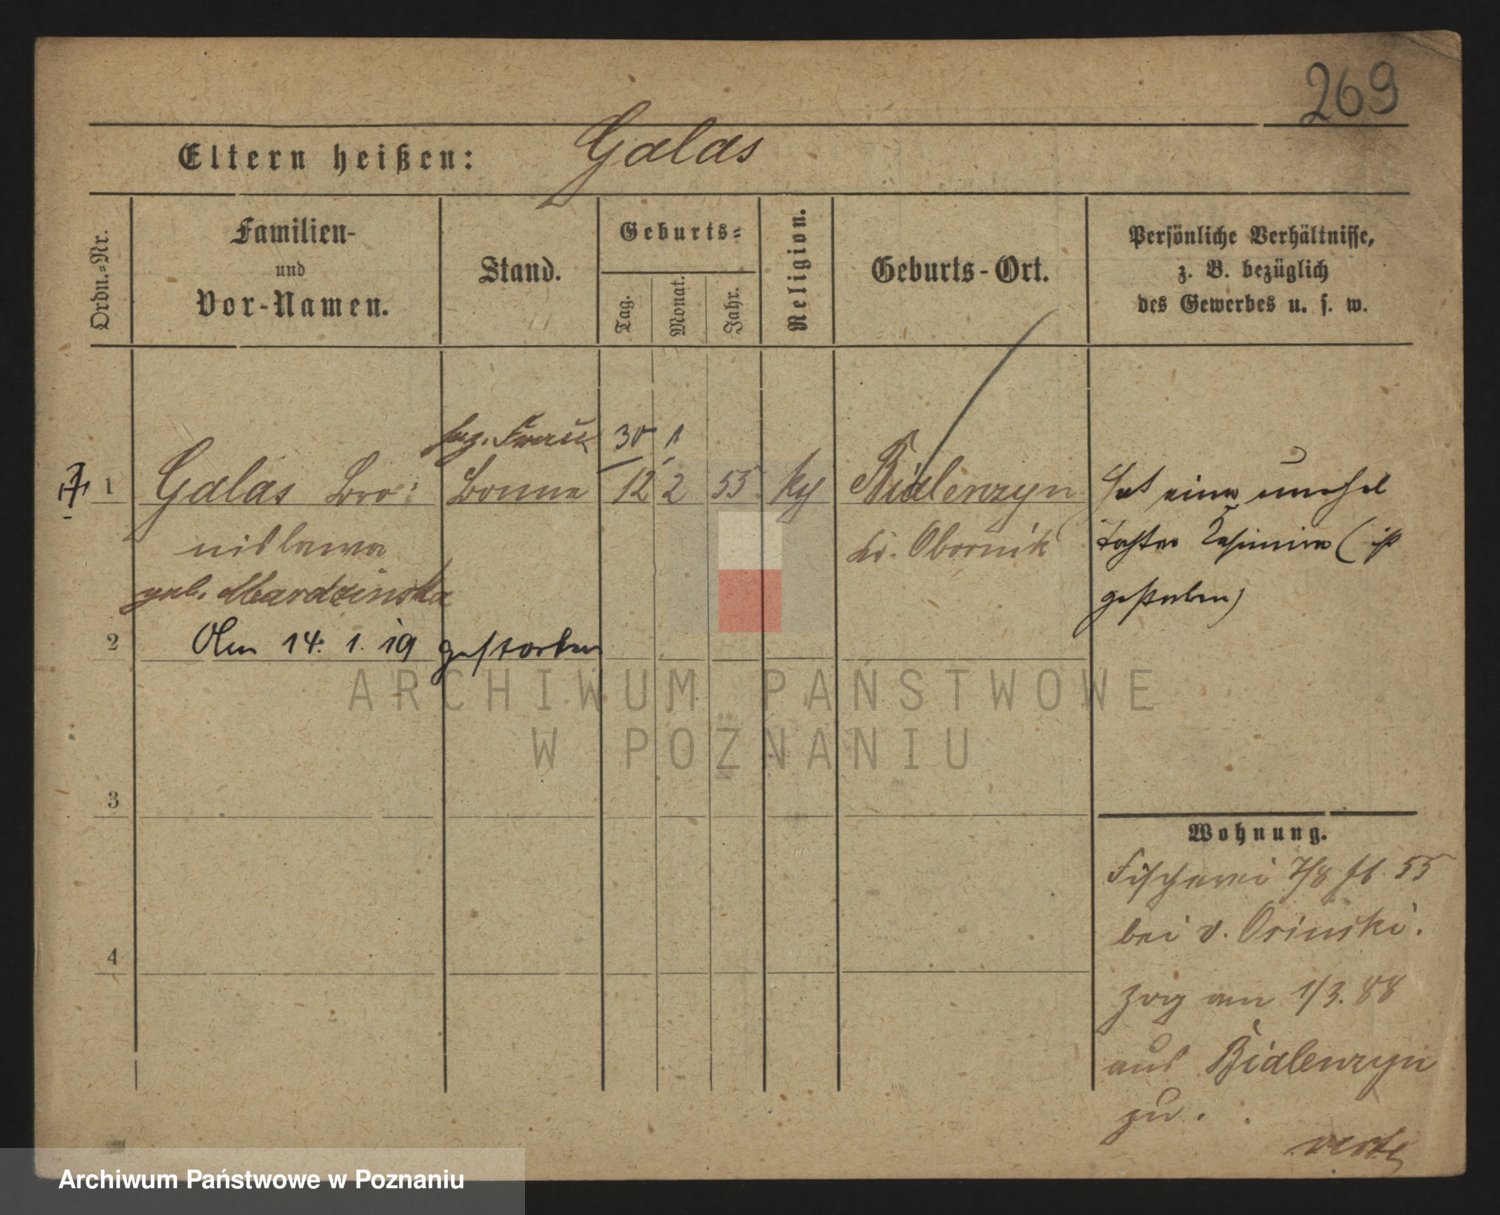 269
Eltern heißen: Galas
Ordn.=Nr.
Familien-
und
Vor-Namen.
Stand.
Geburts=
Tag.
Monat.
Jahr.
Religion.
Geburts-Ort.
Persönliche Verhältnisse,
z. B. bezüglich
des Gewerbes u. s. w.
Frau 30 1
1 Galas Bro: Bonne 12 2 55 ky Bialenzyn Hat eine unehel
nislawa Kr. Obornik tochter Kasimira (ist
geb. Mardzinska gestorben)
2 Am 14. 1. 19 gestorben
ARCHIWUM PAŃSTWOWE
W POZNANIU
3
Wohnung.
Fischerei 7/8 55
bei v. Orinski.
4
zog am 1/3. 88
aus Bialenzyn
zu.
verte
Archiwum Państwowe w Poznaniu